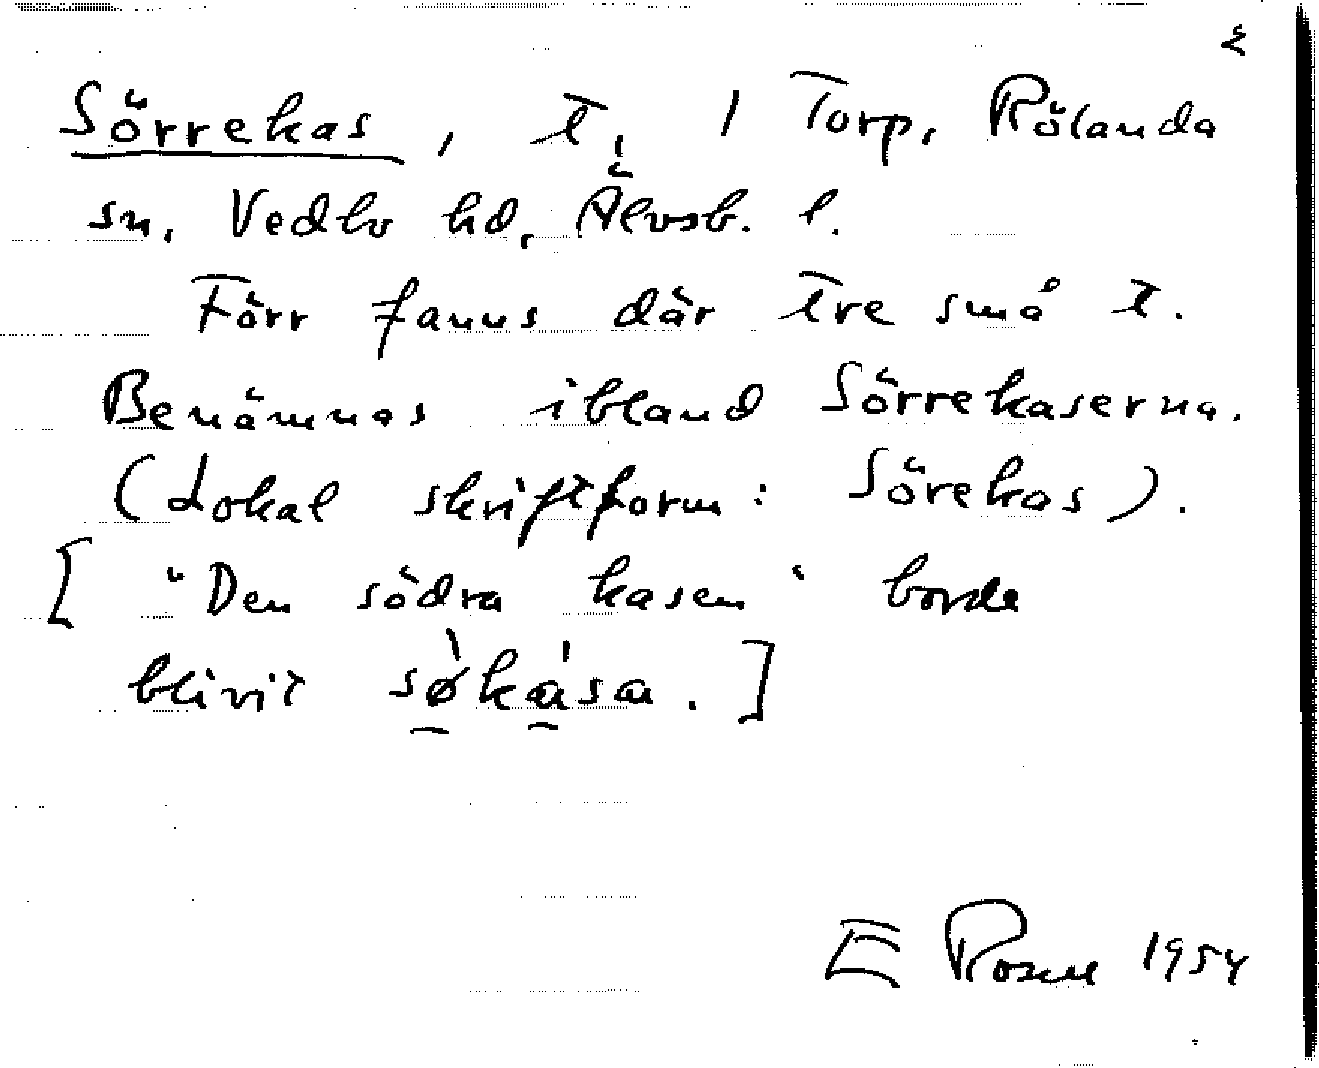 2
Sörrekas, t, 1 Torp, Rölanda
sn, Vedbo hd, Älvsb. l.
Förr fanns där tre små t.
Benämnas ibland Sörrekaserna.
(Lokal skriftform: Sörekas).
["Den södra kasen" borde
blivit sø̀ká̱sa.]
E Rosell 1954